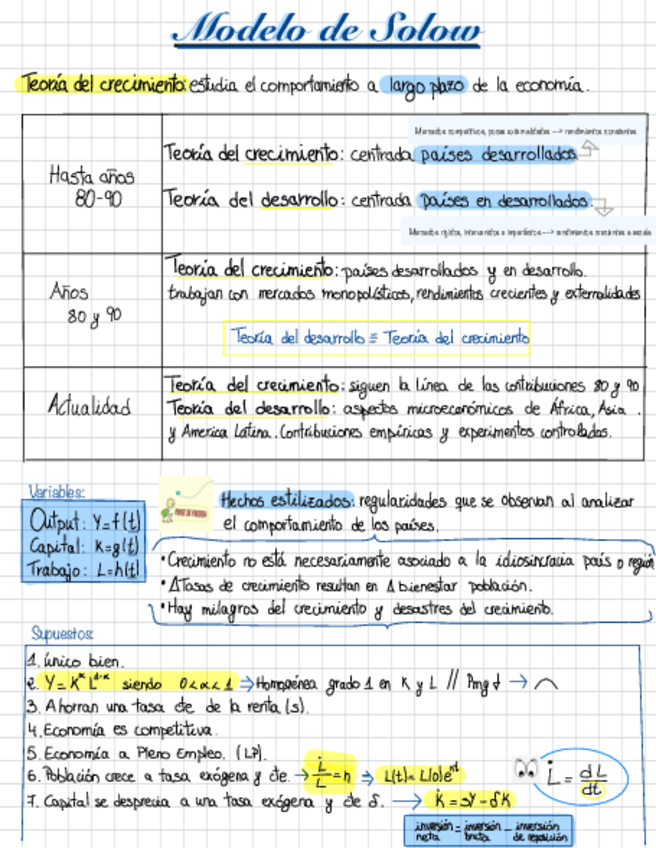 Modelo de Solow
Teoría del crecimiento: estudia el comportamiento a largo plazo de la economía.
Hasta años
80-90
Mercados competitivos, pocas externalidades --> rendimientos constantes
Teoría del crecimiento: centrada países desarrollados
Teoría del desarrollo: centrada países en desarrollados.
Mercados rígidos, intervenidos e imperfectos --> rendimientos crecientes a escala
Años
80 y 90
Teoría del crecimiento: países desarrollados y en desarrollo.
trabajan con mercados monopolísticos, rendimientos crecientes y externalidades
Teoría del desarrollo ≡ Teoría del crecimiento
Actualidad
Teoría del crecimiento: siguen la línea de las contribuciones 80 y 90
Teoría del desarrollo: aspectos microeconómicos de África, Asia
y America Latina. Contribuciones empíricas y experimentos controlados.
Variables:
Output: Y=f(t)
Capital: K=g(t)
Trabajo: L=h(t)
PUNTO DE PARTIDA
Hechos estilizados: regularidades que se observan al analizar
el comportamiento de los países.
•Crecimiento no está necesariamente asociado a la idiosincrasia país o región
•ΔTasas de crecimiento resultan en Δ bienestar población.
•Hay milagros del crecimiento y desastres del crecimiento.
Supuestos:
1. único bien.
2. Y=K^α L^1-α siendo 0<α<1 ⇒ Homogénea grado 1 en K y L // Pmg ↓ →
3. Ahorran una tasa cte de la renta (s).
4. Economía es competitiva.
5. Economía a Pleno Empleo. (LP).
6. Población crece a tasa exógena y cte. → L̇/L = n ⇒ L(t)=L(0)e^nt
L̇ = dL/dt
7. Capital se deprecia a una tasa exógena y cte δ. → K̇ = sY - δK
inversión neta = inversión bruta - inversión de reposición